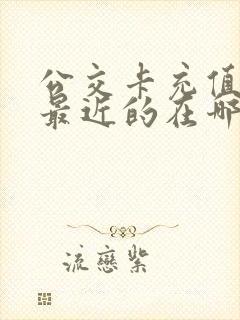 公交卡充值
最近的在哪
流恋紫